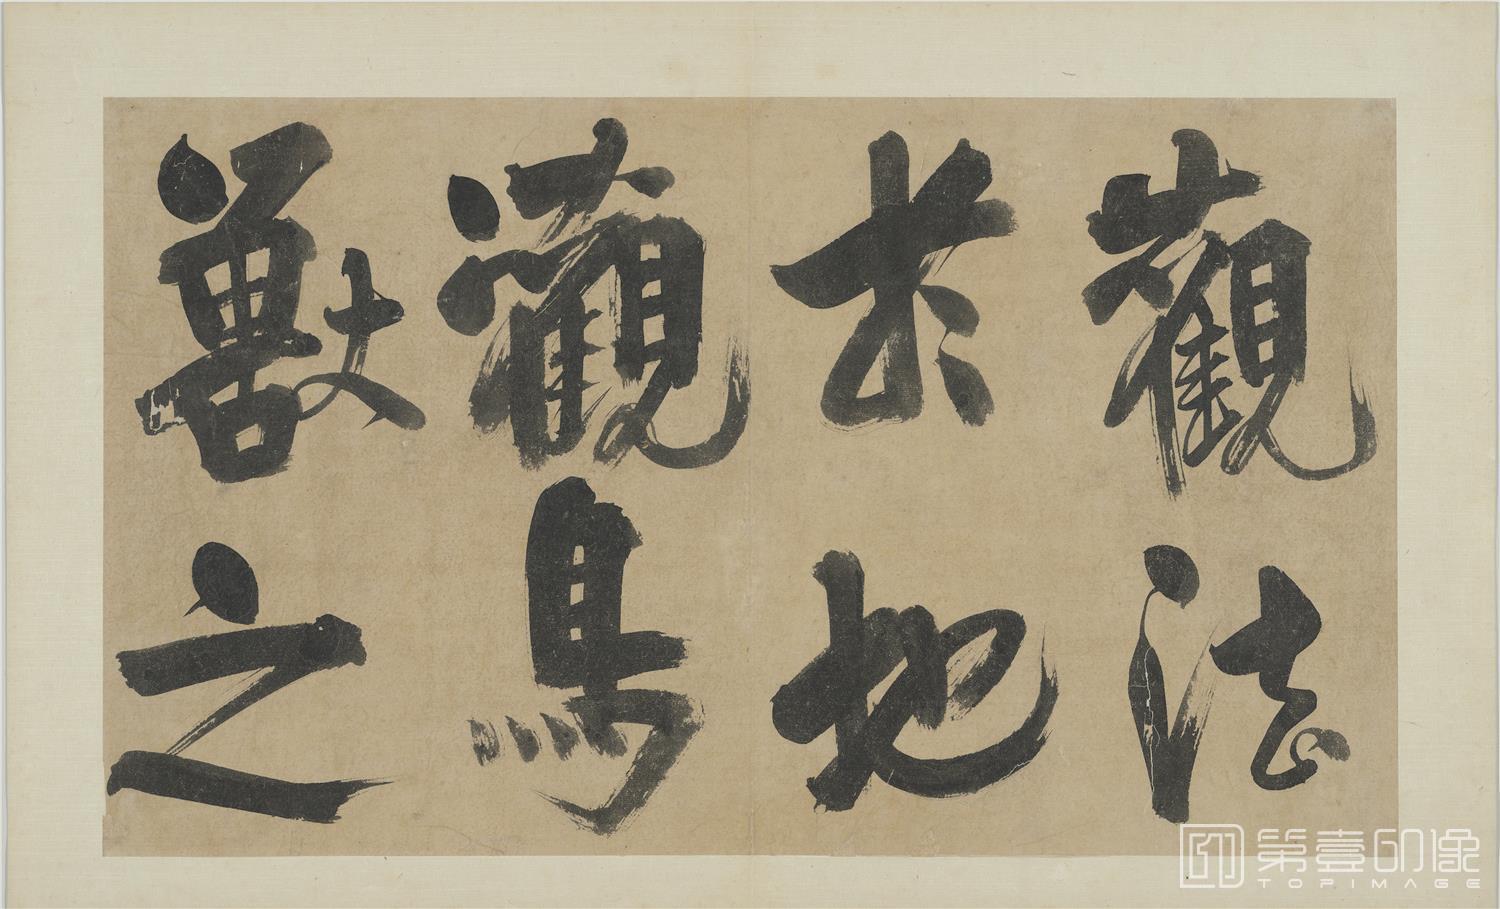 觀法
於地
觀鳥
獸之
第壹印像
TOPIMAGE